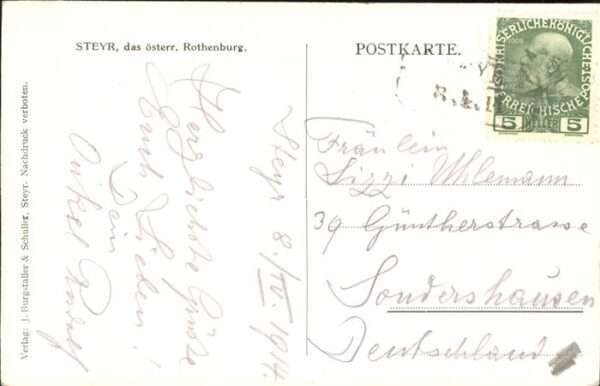 STEYR, das österr. Rothenburg.
POSTKARTE.
KAISERLICHE KÖNIGLICHE
ÖSTERREICHISCHE POST
5 5
8.4.1
Steyr 8./IV. 1914.
Herzlichste Grüße
Euch Lieben!
Dein
Onkel Rudolf
Fräulein
Lizzi Uhlemann
39 Güntherstrasse
Sondershausen
Deutschland
Verlag: J. Burgstaller & Schuller, Steyr. Nachdruck verboten.